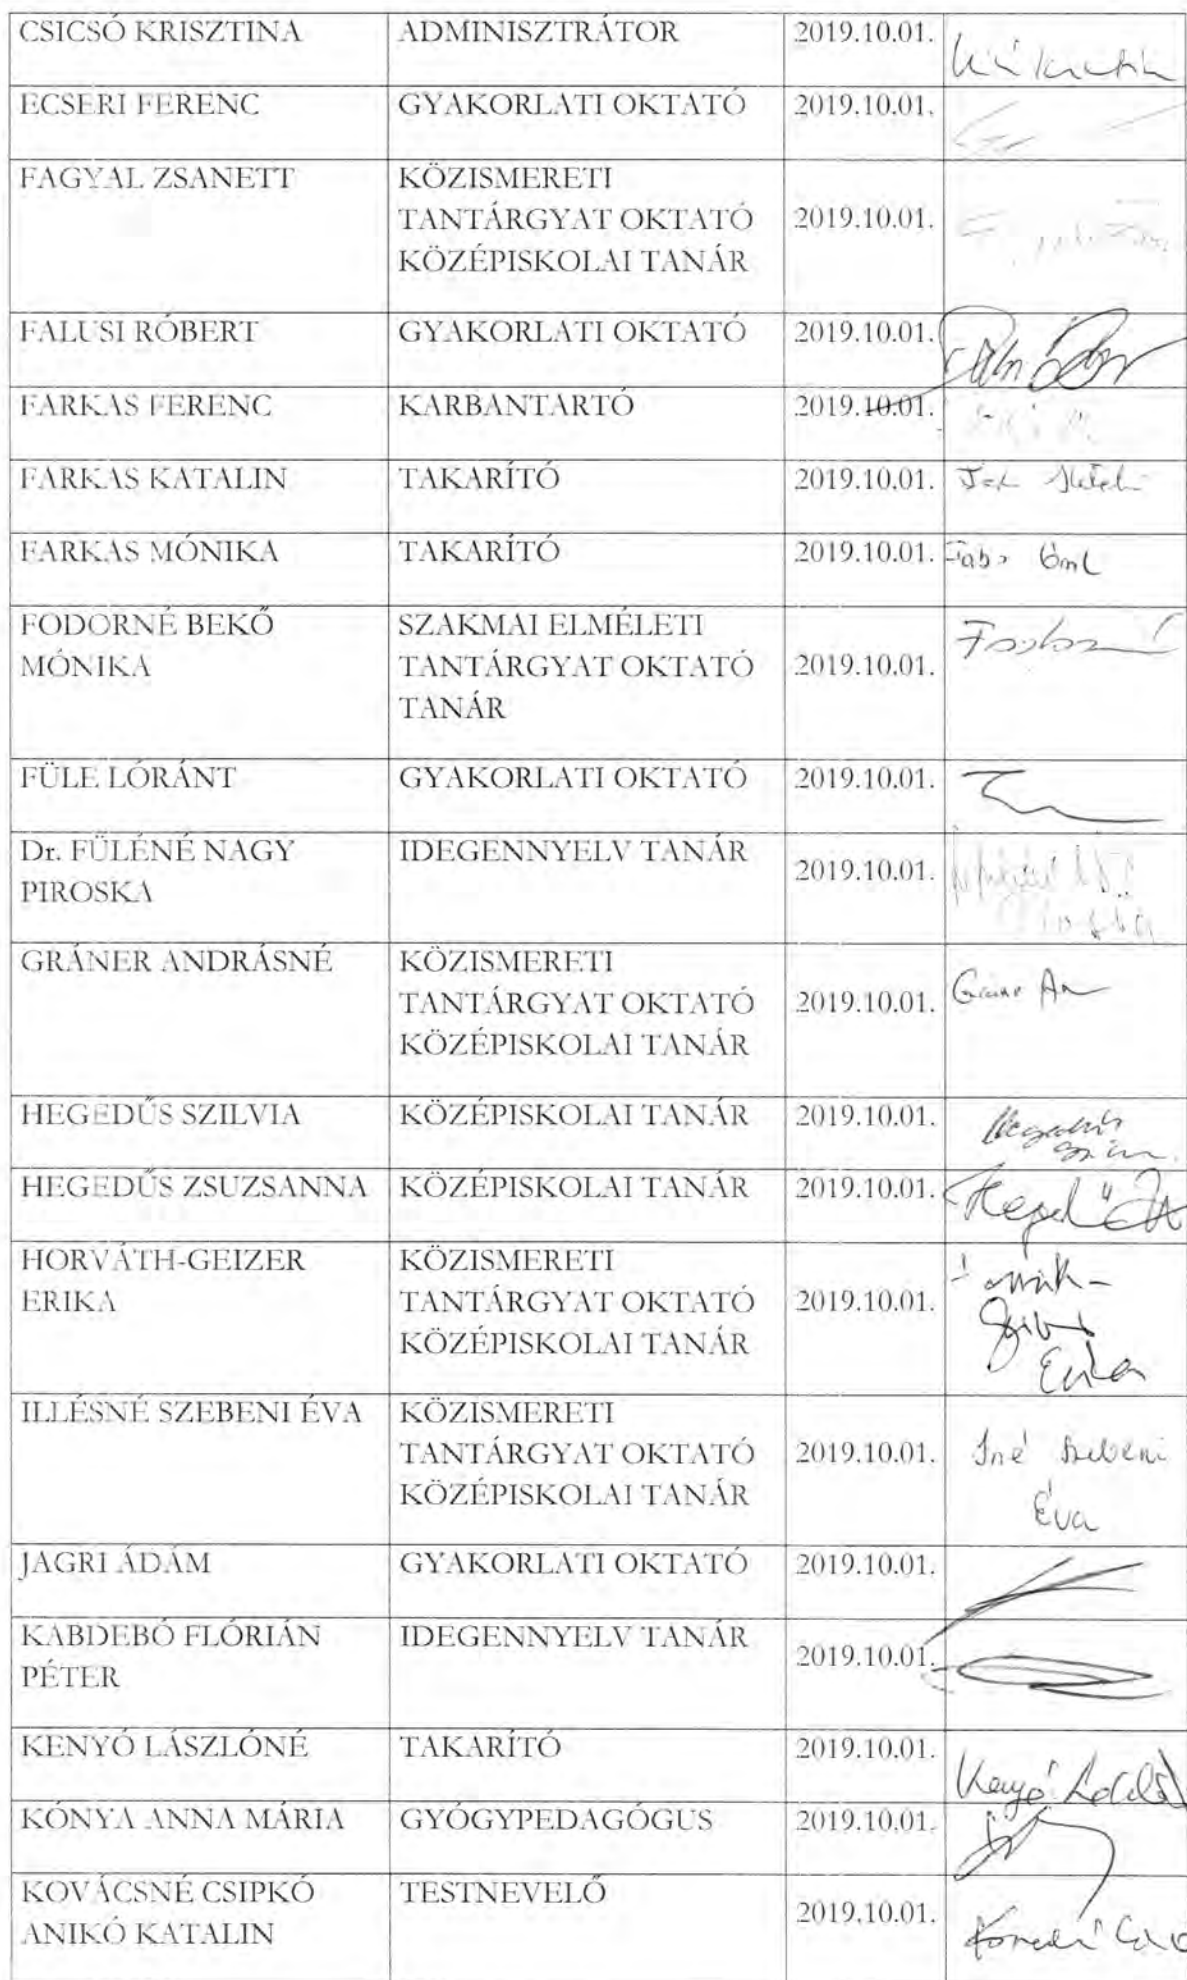 CSICSÓ KRISZTINA ADMINISZTRÁTOR 2019.10.01.
ECSERI FERENC GYAKORLATI OKTATÓ 2019.10.01.
FAGYAL ZSANETT KÖZISMERETI
TANTÁRGYAT OKTATÓ 2019.10.01.
KÖZÉPISKOLAI TANÁR
FALUSI RÓBERT GYAKORLATI OKTATÓ 2019.10.01.
FARKAS FERENC KARBANTARTÓ 2019.10.01.
FARKAS KATALIN TAKARÍTÓ 2019.10.01.
FARKAS MÓNIKA TAKARÍTÓ 2019.10.01.
FODORNÉ BEKŐ SZAKMAI ELMÉLETI
MÓNIKA TANTÁRGYAT OKTATÓ 2019.10.01.
TANÁR
FÜLE LÓRÁNT GYAKORLATI OKTATÓ 2019.10.01.
Dr. FÜLÉNÉ NAGY IDEGENNYELV TANÁR 2019.10.01.
PIROSKA
GRÁNER ANDRÁSNÉ KÖZISMERETI
TANTÁRGYAT OKTATÓ 2019.10.01.
KÖZÉPISKOLAI TANÁR
HEGEDŰS SZILVIA KÖZÉPISKOLAI TANÁR 2019.10.01.
HEGEDŰS ZSUZSANNA KÖZÉPISKOLAI TANÁR 2019.10.01.
HORVÁTH-GEIZER KÖZISMERETI
ERIKA TANTÁRGYAT OKTATÓ 2019.10.01.
KÖZÉPISKOLAI TANÁR
Erika
ILLÉSNÉ SZEBENI ÉVA KÖZISMERETI
TANTÁRGYAT OKTATÓ 2019.10.01. Iné Szebeni
KÖZÉPISKOLAI TANÁR Éva
JAGRI ÁDÁM GYAKORLATI OKTATÓ 2019.10.01.
KABDEBÓ FLÓRIÁN IDEGENNYELV TANÁR 2019.10.01.
PÉTER
KENYÓ LÁSZLÓNÉ TAKARÍTÓ 2019.10.01.
KÓNYA ANNA MÁRIA GYÓGYPEDAGÓGUS 2019.10.01.
KOVÁCSNÉ CSIPKÓ TESTNEVELŐ 2019.10.01.
ANIKÓ KATALIN